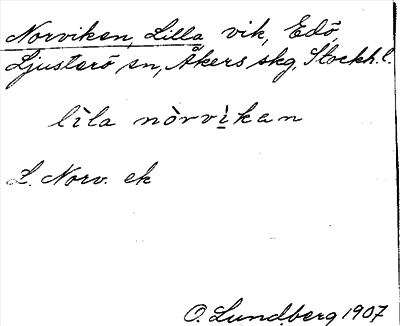 Norviken, Lilla vik, Edö,
Ljusterö sn, Åkers skg, Stockh. l.
lìla nòrvìkan
L. Norv. ek
O. Lundberg 1907